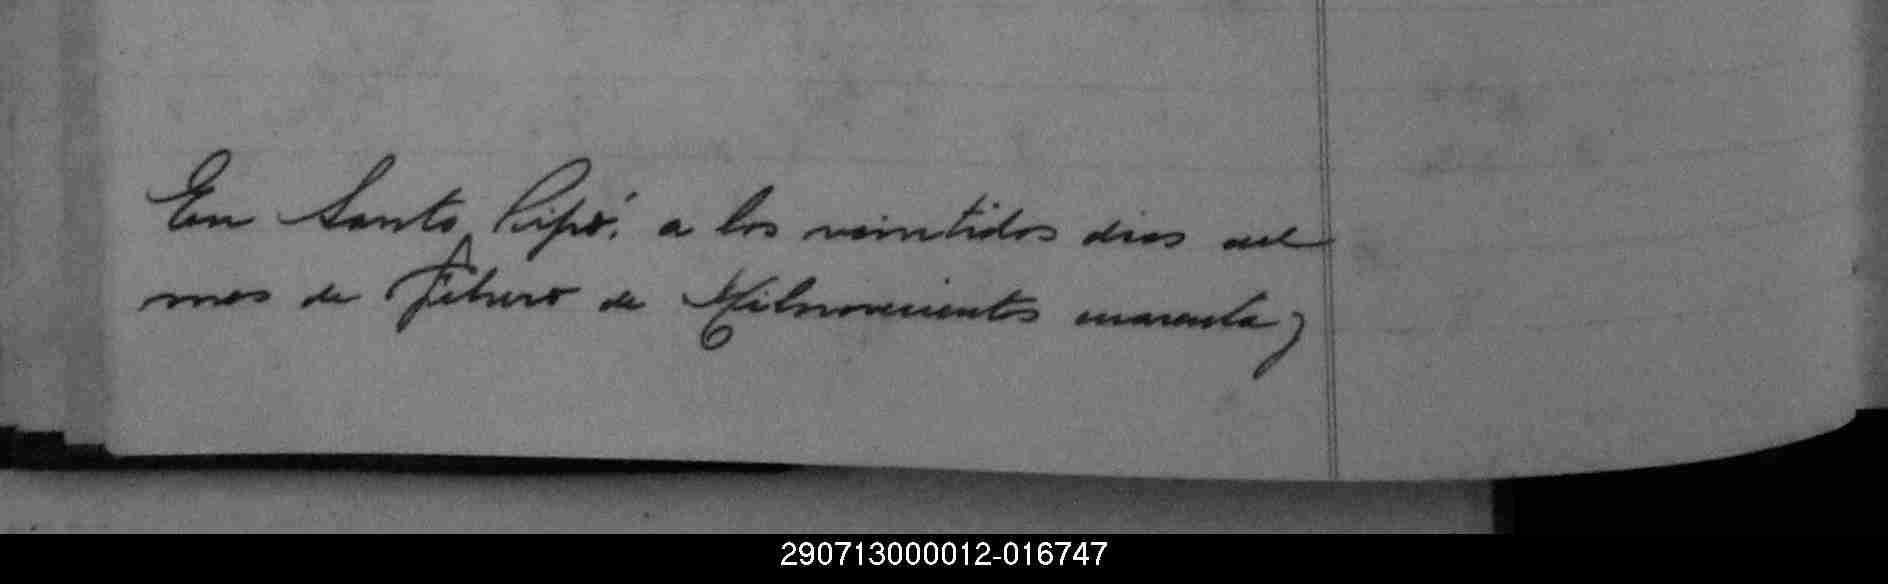 En Santo Pipó, a los veintidos dias del
mes de Febrero de Milnovecientos cuarenta y
290713000012-016747